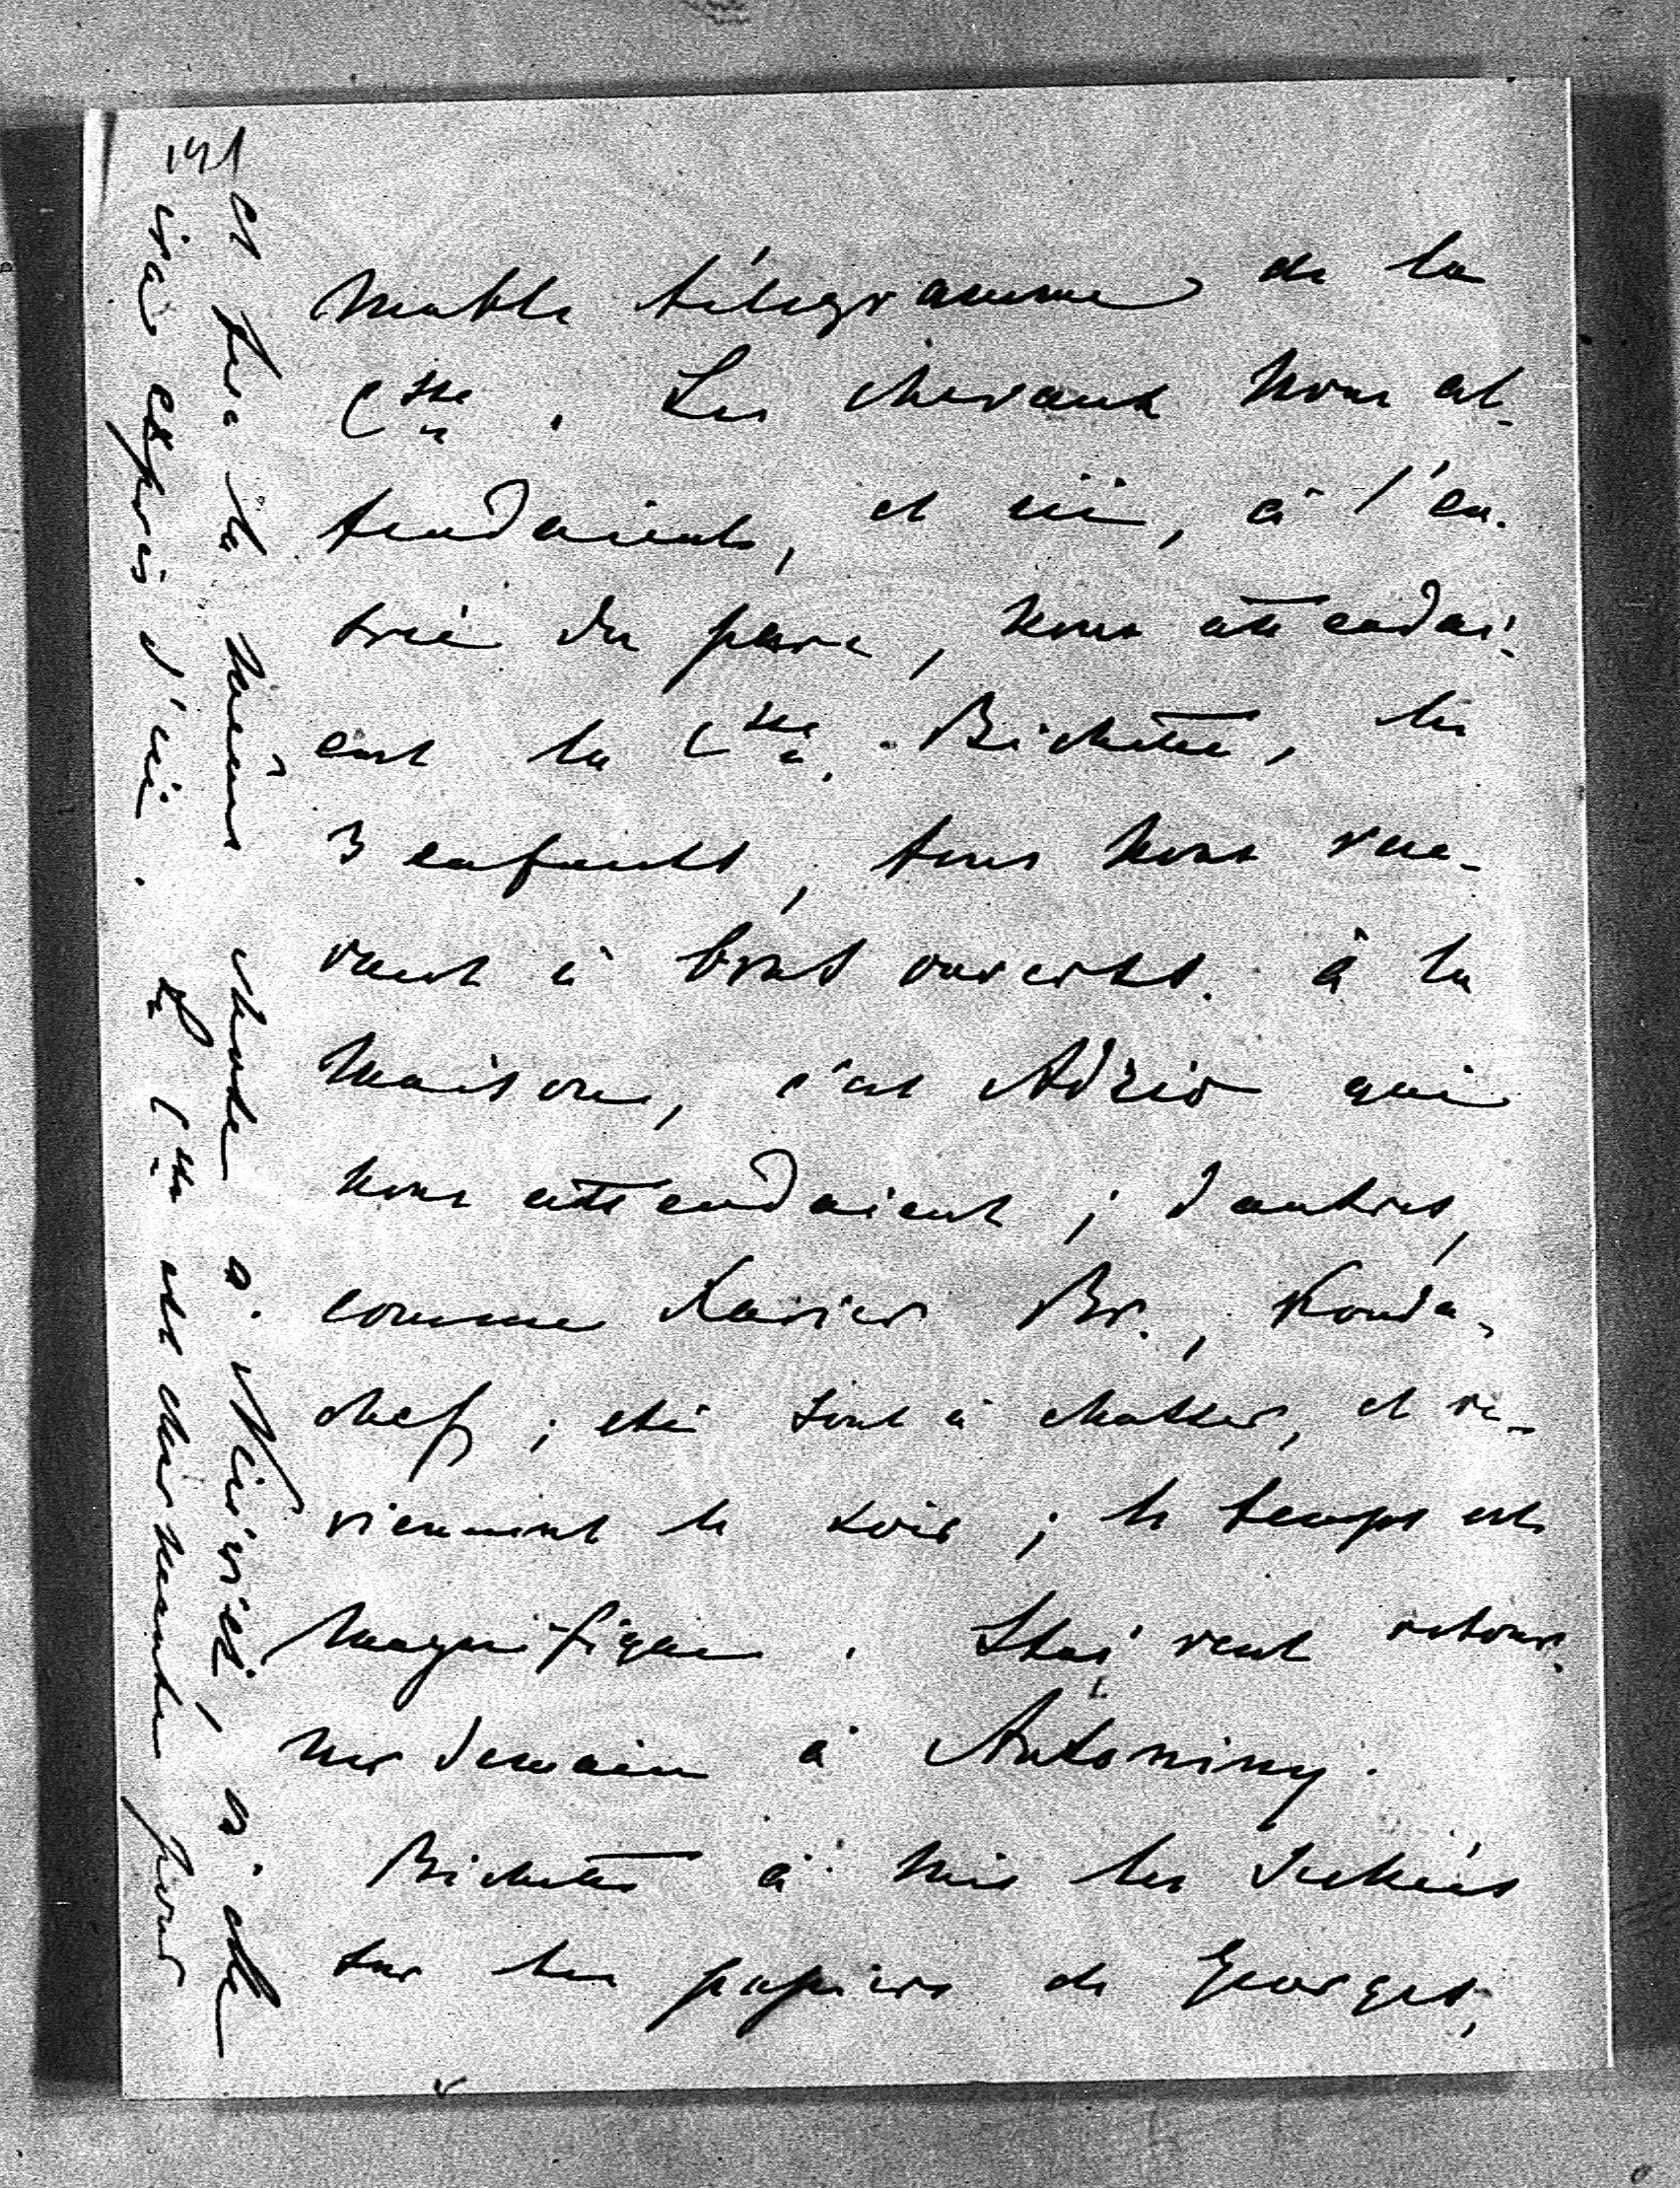 191
mable télégramme de la
Ctsse. Les chevaux nous at-
tendaients, et ici, à l'en-
trée du parc, nous attendai-
ent la Ctsse. Bichette, les
3 enfants, tous nous rece-
vant à bras ouverts. à la
maison, c'est Adzio qui
nous attendaient ; d'autres,
comme Xavier Br., Kouda-
chef, etc sont à chasser, et re-
viennent le soir ; le temps est
magnifique. Staś veut retour-
ner demain à Antoniny.
Bichette a mis les
sur les papiers de Georges,
et fera la même chose à Nieśwież, n.
ira exprès d'ici. La Ctsse est charmante pour